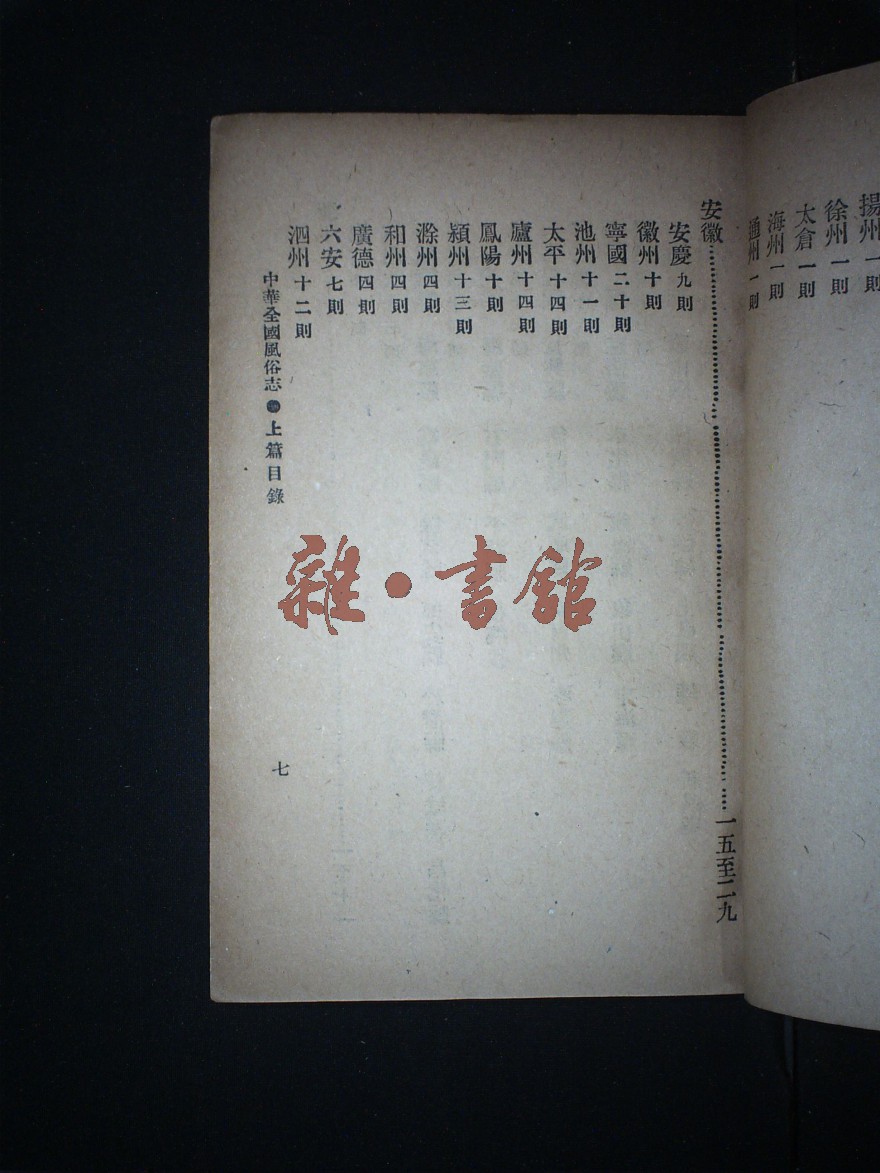 揚州 一則
徐州 一則
太倉 一則
海州 一則
通州 一則
安徽……一五至二九
安慶 九則
徽州 十則
寧國 二十則
池州 十一則
太平 十四則
廬州 十四則
鳳陽 十則
潁州 十三則
滁州 四則
和州 四則
廣德 四則
六安 七則
泗州 十二則
中華全國風俗志 ● 上篇目錄
七
雜·書館